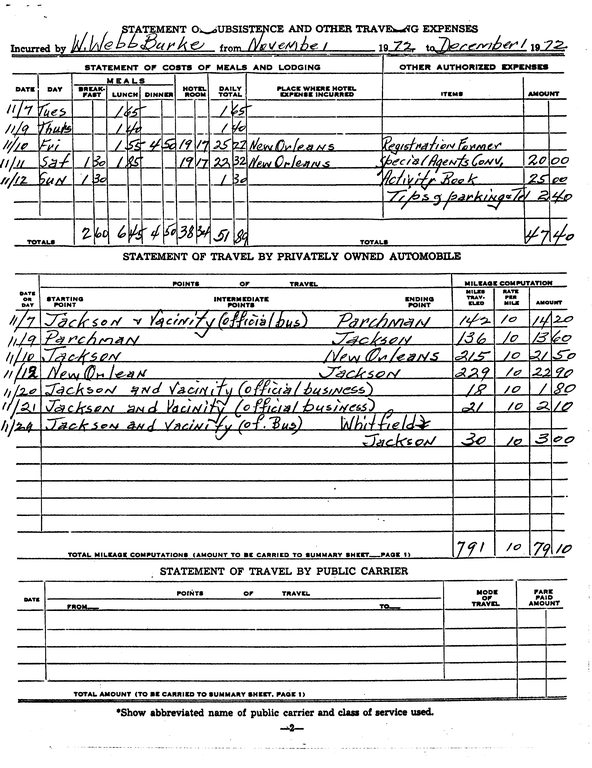 STATEMENT OF SUBSISTENCE AND OTHER TRAVELING EXPENSES
Incurred by W. Webb Burke from November 1 1972 to December 1 1972
STATEMENT OF COSTS OF MEALS AND LODGING OTHER AUTHORIZED EXPENSES
MEALS
DATE DAY BREAK-FAST LUNCH DINNER HOTEL ROOM DAILY TOTAL PLACE WHERE HOTEL EXPENSE INCURRED ITEMS AMOUNT
11/7 Tues 1 65 1 65
11/9 Thurs 1 40 1 40
11/10 Fri 1 55 4 50 19 17 25 22 New Orleans Registration Former
11/11 Sat 1 30 1 85 19 17 22 32 New Orleans Special Agents Conv. 20 00
11/12 Sun 1 30 1 30 Activity Book 25 00
Tips & parking 2 40
TOTALS 2 60 6 45 4 50 38 34 51 89 TOTALS 47 40
STATEMENT OF TRAVEL BY PRIVATELY OWNED AUTOMOBILE
POINTS OF TRAVEL MILEAGE COMPUTATION
DATE OR DAY STARTING POINT INTERMEDIATE POINTS ENDING POINT MILES TRAV-ELED RATE PER MILE AMOUNT
11/7 Jackson & Vacinity (official bus) Parchman 142 10 14 20
11/9 Parchman Jackson 136 10 13 60
11/10 Jackson New Orleans 215 10 21 50
11/12 New Orlean Jackson 229 10 22 90
11/20 Jackson and Vacinity (official business) 18 10 1 80
11/21 Jackson and Vacinity (official business) 21 10 2 10
11/29 Jackson and Vacinity (of. Bus) Whitfield &
Jackson 30 10 3 00
TOTAL MILEAGE COMPUTATIONS (AMOUNT TO BE CARRIED TO SUMMARY SHEET—PAGE 1) 791 10 79 10
STATEMENT OF TRAVEL BY PUBLIC CARRIER
DATE POINTS OF TRAVEL MODE OF TRAVEL FARE PAID AMOUNT
FROM TO
TOTAL AMOUNT (TO BE CARRIED TO SUMMARY SHEET. PAGE 1)
*Show abbreviated name of public carrier and class of service used.
—2—